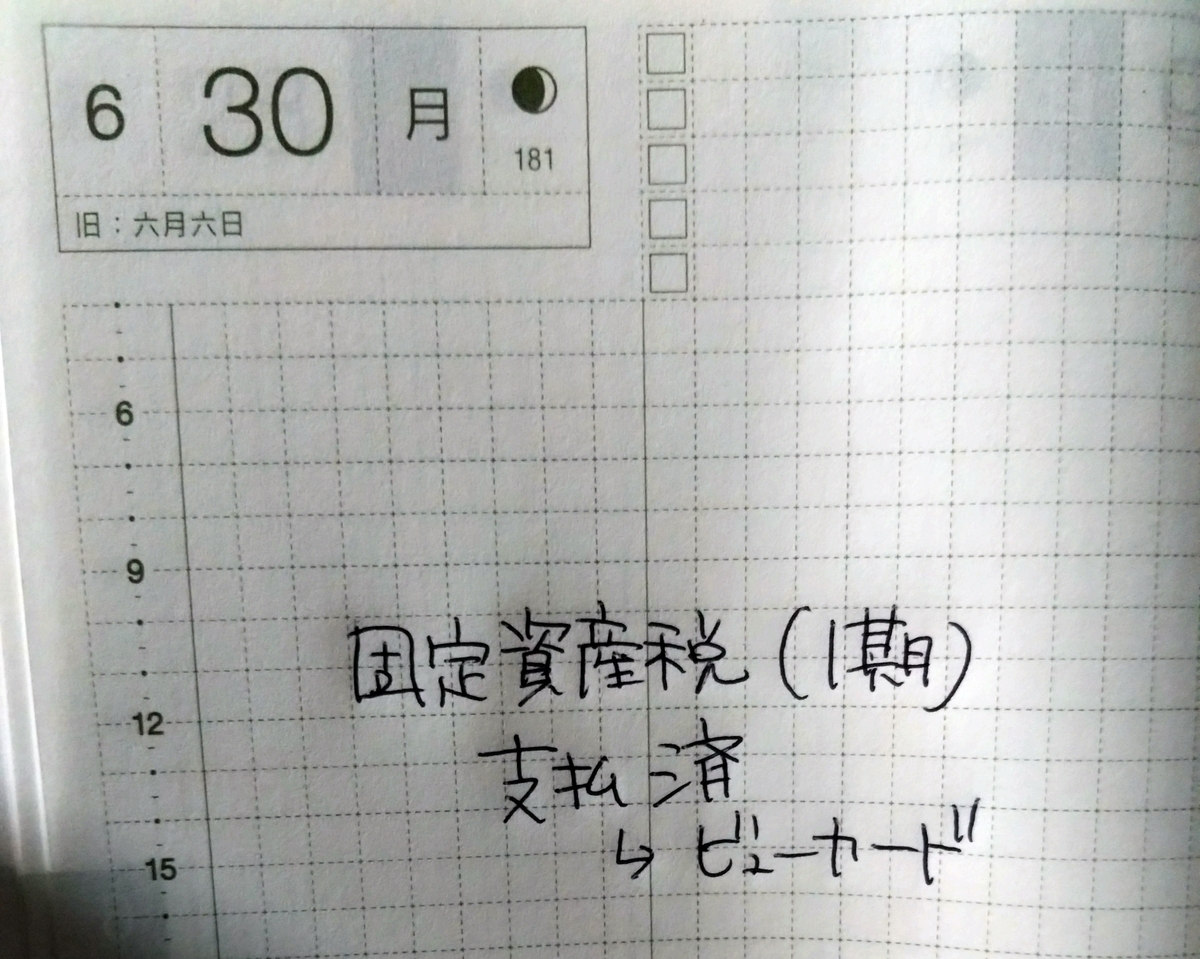 6 30 月
181
旧：六月六日
6
9
12
15
固定資産税（1期）
支払済
↳ ビューカード